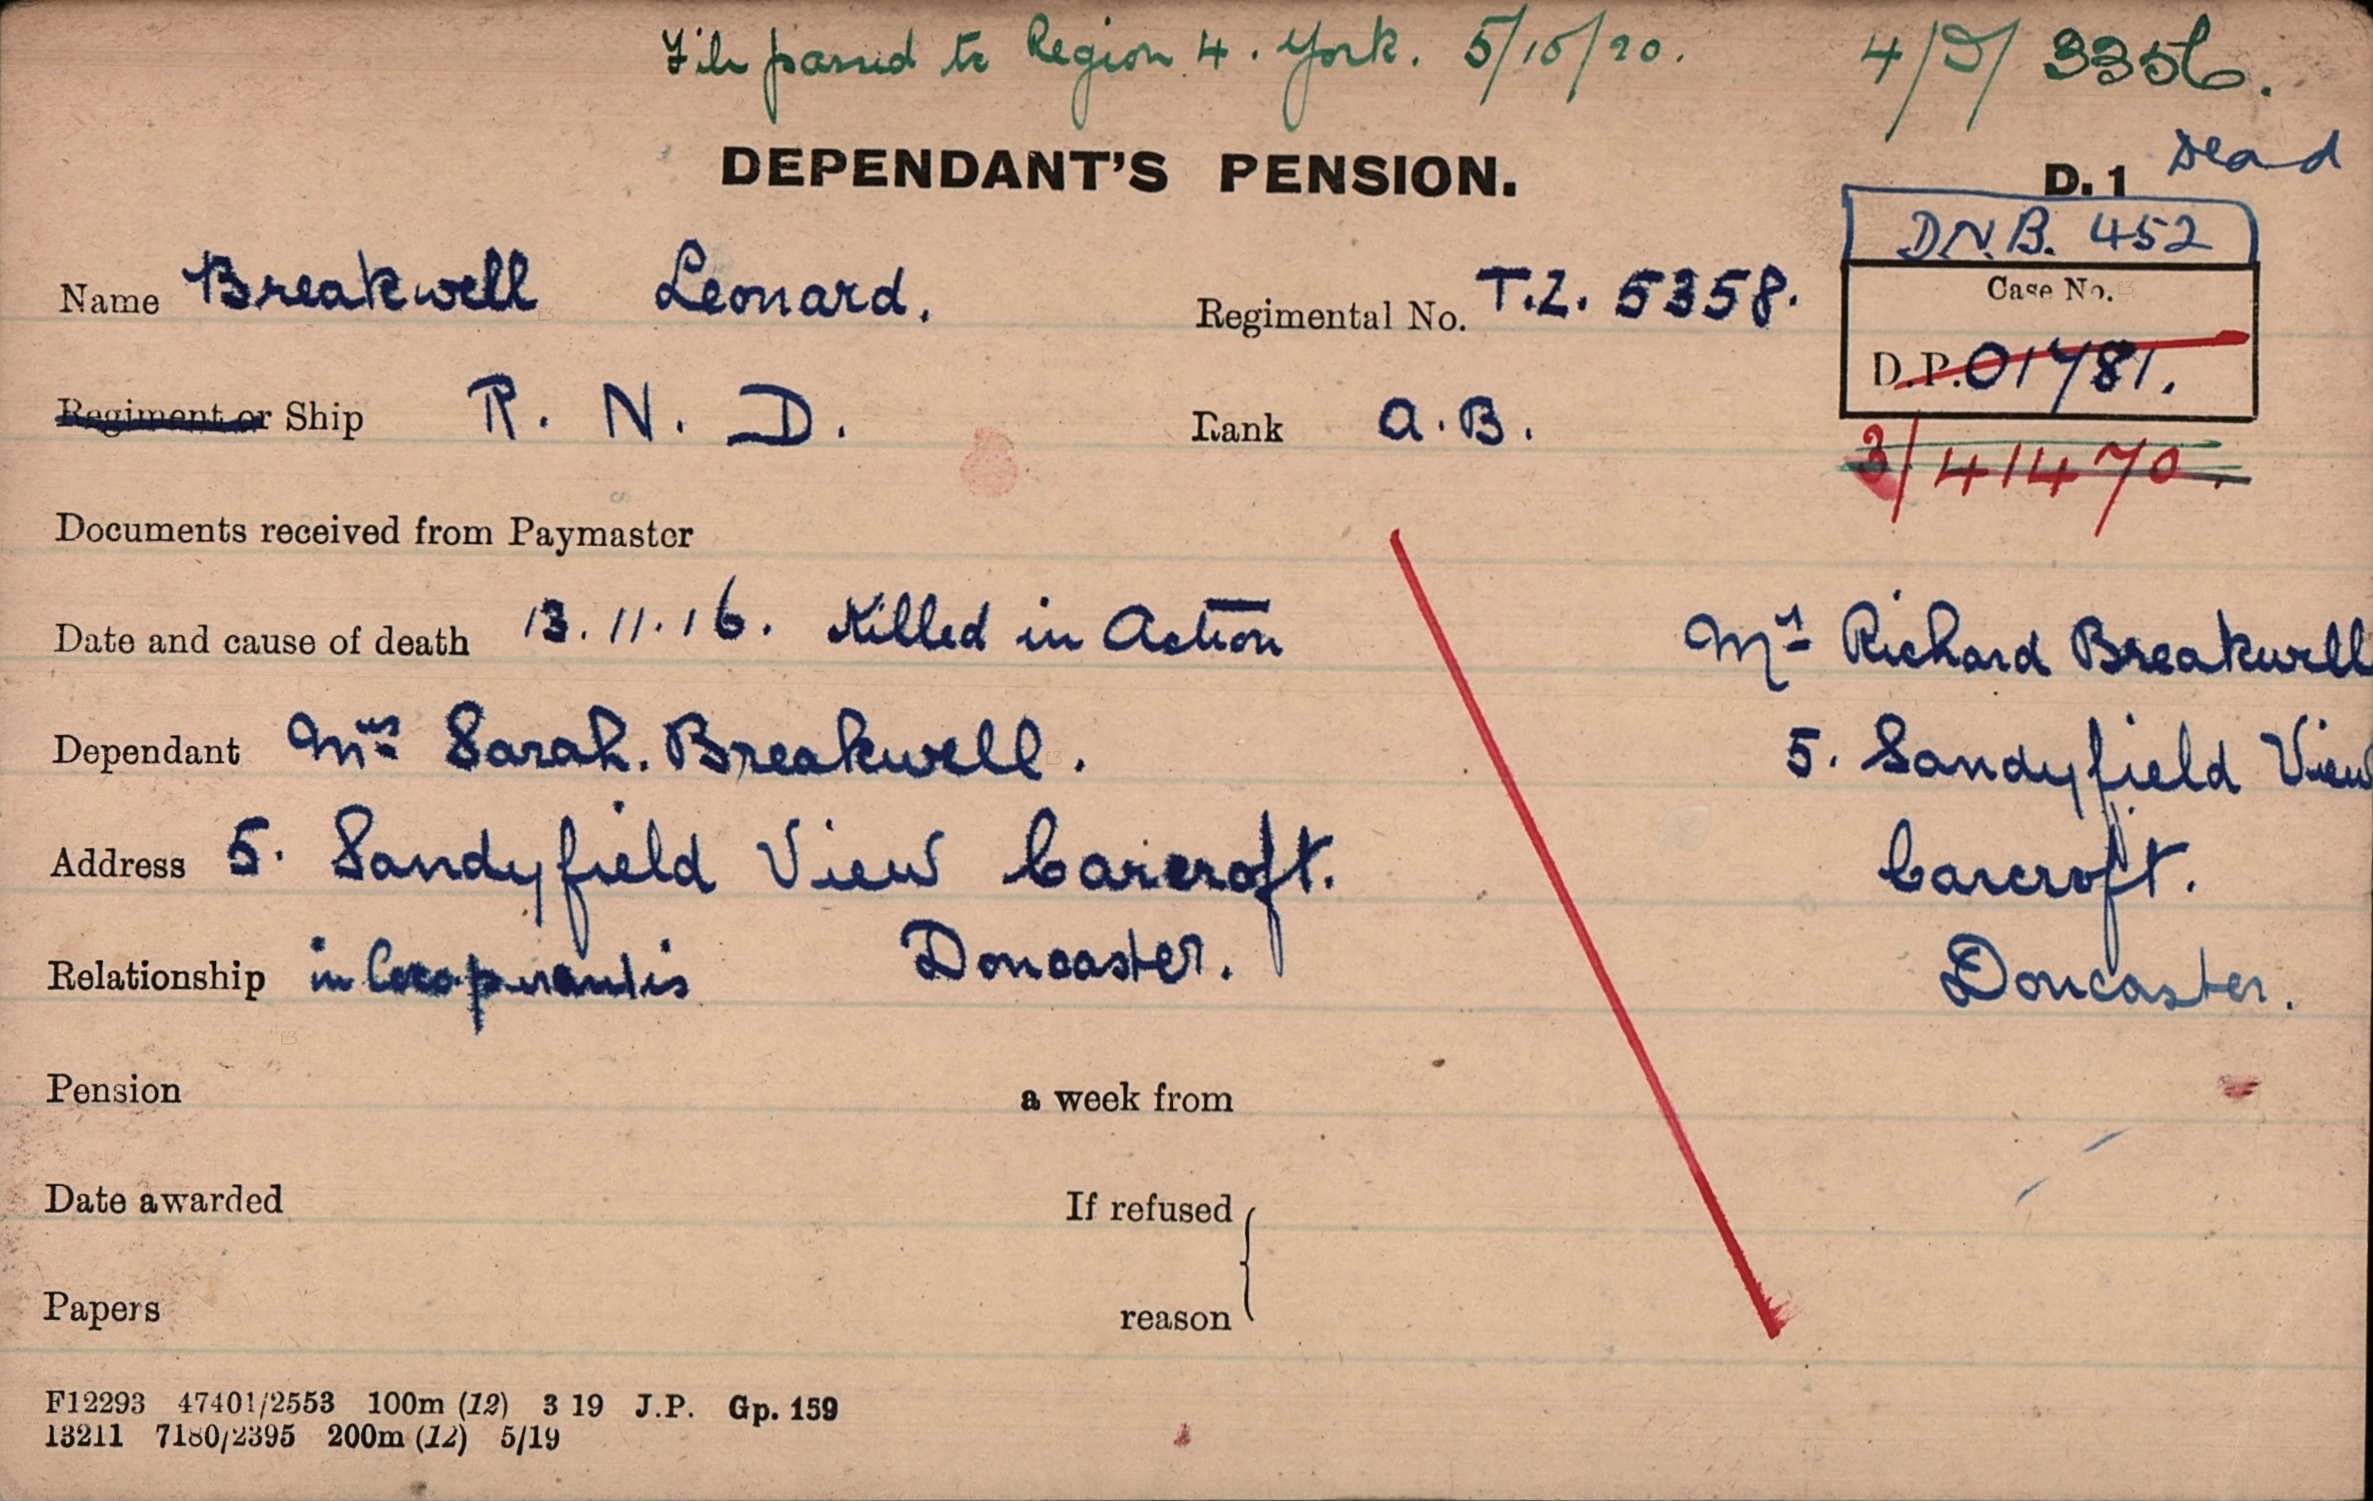 File passed to Region 4. York. 5/10/20. 4/D/ 3356.
DEPENDANT'S PENSION. D. 1 Dead
D.N.B. 452
Name Breakwell Leonard. Regimental No. T.Z. 5358.
Case No.
D.P. 01781.
Regiment or Ship R. N. D. Rank A.B.
3/41470.
Documents received from Paymaster
Date and cause of death 13.11.16. Killed in Action Mr Richard Breakwell
Dependant Mrs Sarah. Breakwell. 5. Sandyfield View
Address 5. Sandyfield View Carcroft. Carcroft.
Relationship in Doncaster. Doncaster.
Pension a week from
Date awarded If refused
Papers reason
F12293 47401/2553 100m (12) 3 19 J.P. Gp. 159
13211 7180/2395 200m (12) 5/19